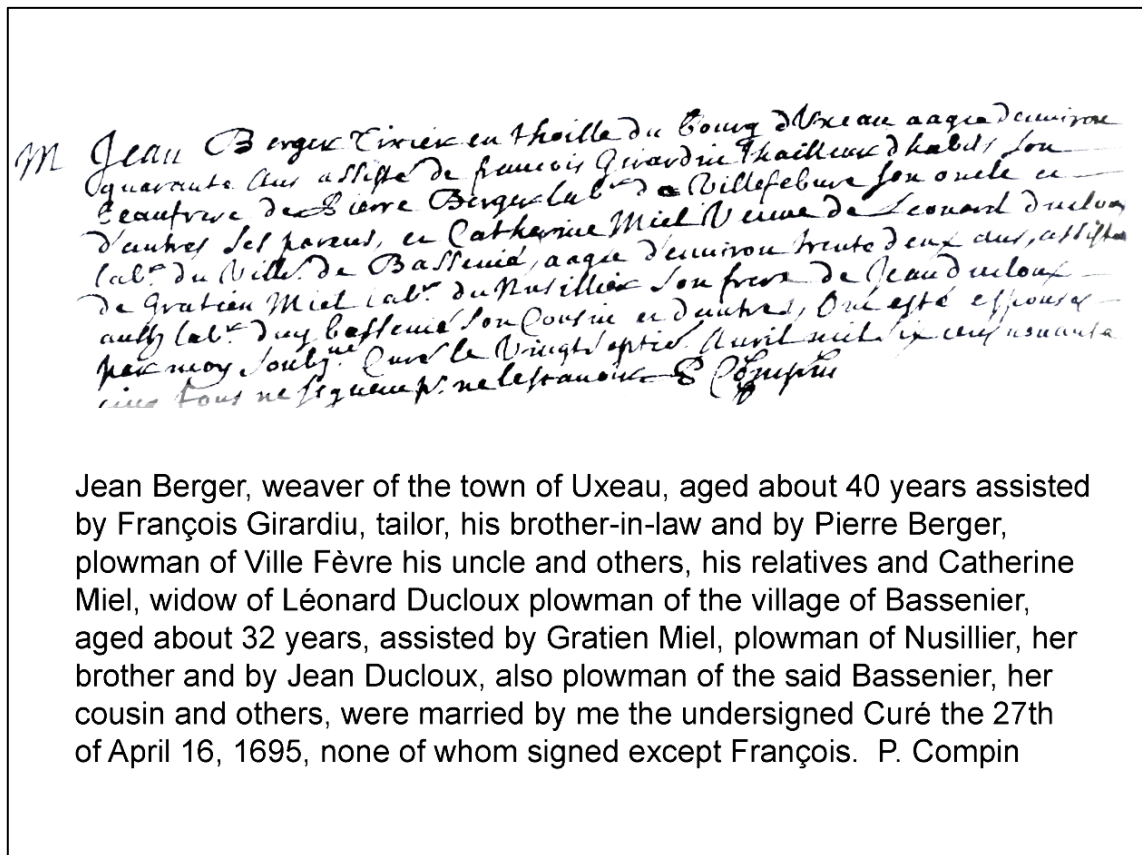 M Jean Berger Tixier en thoille du bourg d'Uxeau aagé denviron
quarante ans assisté de francois Girardin thailleur dhabits son
beaufrere de Pierre Berger labr de Villefebure son oncle et
d'autres ses parens, et Catherine Miel Veuve de Leonard ducloux
labr du Ville de Bassenié, aagée d'environ trente deux ans, assistée
de Gratien Miel labr du Nusillier son frere de Jean ducloux
aussy labr dudt bassenié son Cousin et dautres, Ont esté espousés
par moy soubzné Curé le Vingt septie Auril mil six cens nonante
cinq tous ne signent pr ne le scavoir P Compin
Jean Berger, weaver of the town of Uxeau, aged about 40 years assisted
by François Girardiu, tailor, his brother-in-law and by Pierre Berger,
plowman of Ville Fèvre his uncle and others, his relatives and Catherine
Miel, widow of Léonard Ducloux plowman of the village of Bassenier,
aged about 32 years, assisted by Gratien Miel, plowman of Nusillier, her
brother and by Jean Ducloux, also plowman of the said Bassenier, her
cousin and others, were married by me the undersigned Curé the 27th
of April 16, 1695, none of whom signed except François. P. Compin